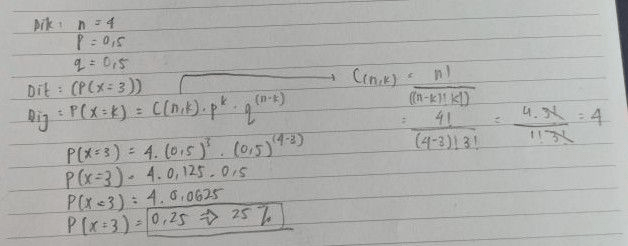 Dik : n = 4
p = 0,5
q = 0,5
Dit : (P(x=3))
Dij : P(x=k) = C(n,k) . p^k . q^(n-k)
P(x=3) = 4. (0,5)^3 . (0,5)^(4-3)
P(x=3) = 4. 0,125 . 0,5
P(x=3) = 4. 0,0625
P(x=3) = 0,25 ⇒ 25 %
→ C(n,k) = n! / ((n-k)! k!)
= 4! / (4-3)! 3! = 4. 3! / 1! 3! = 4